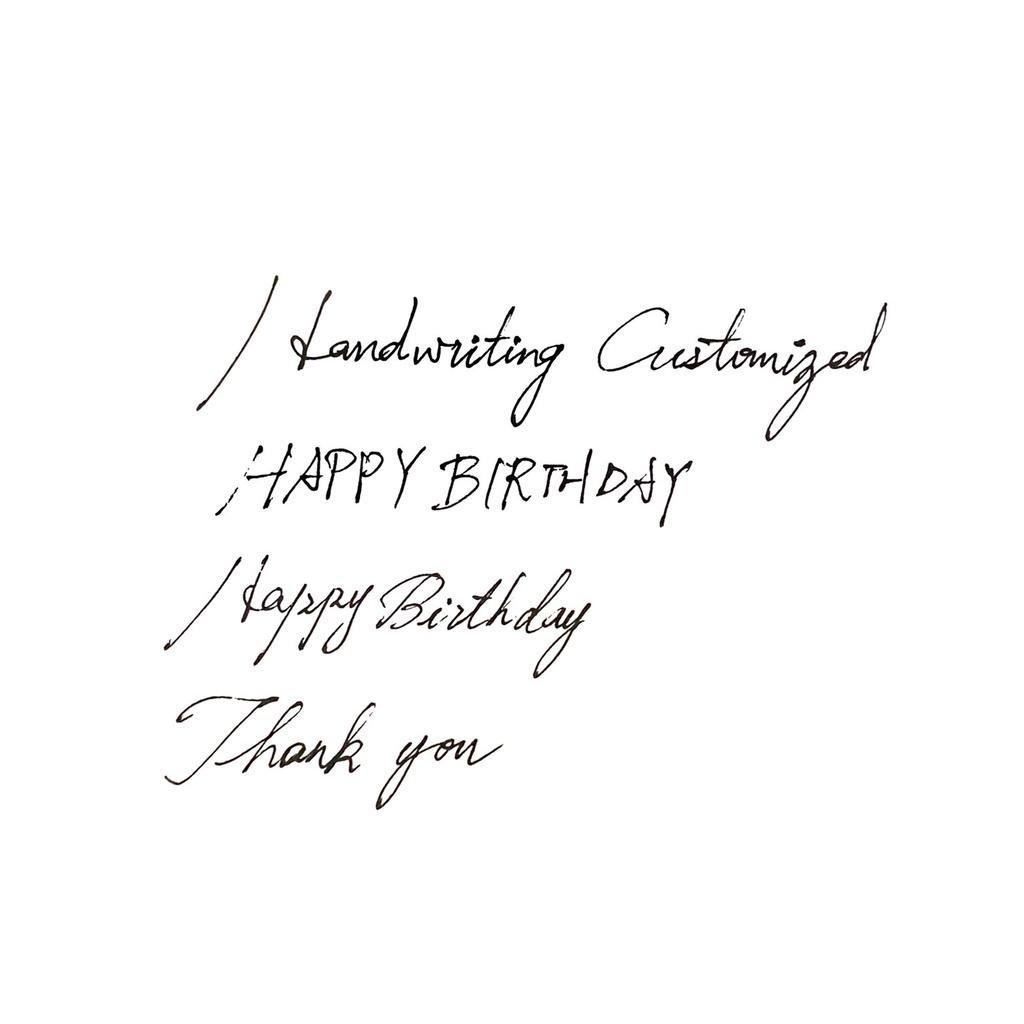 Handwriting Customized
HAPPY BIRTHDAY
Happy Birthday
Thank you